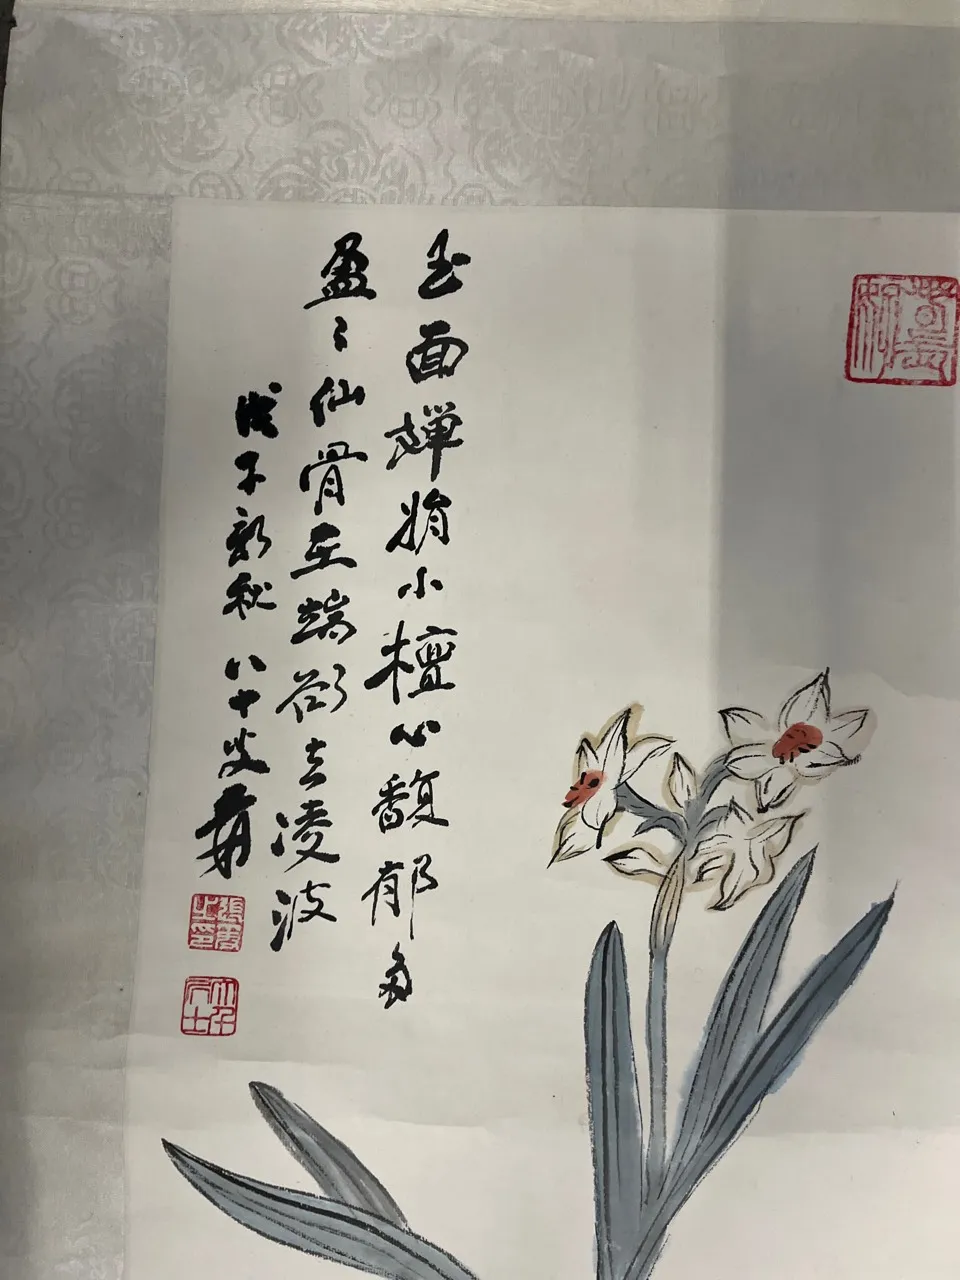 玉面嬋娟小檀心馥郁多
盈〻仙骨在端欲去凌波
戊子新秋八十叟爰
張爰之印
大千居士